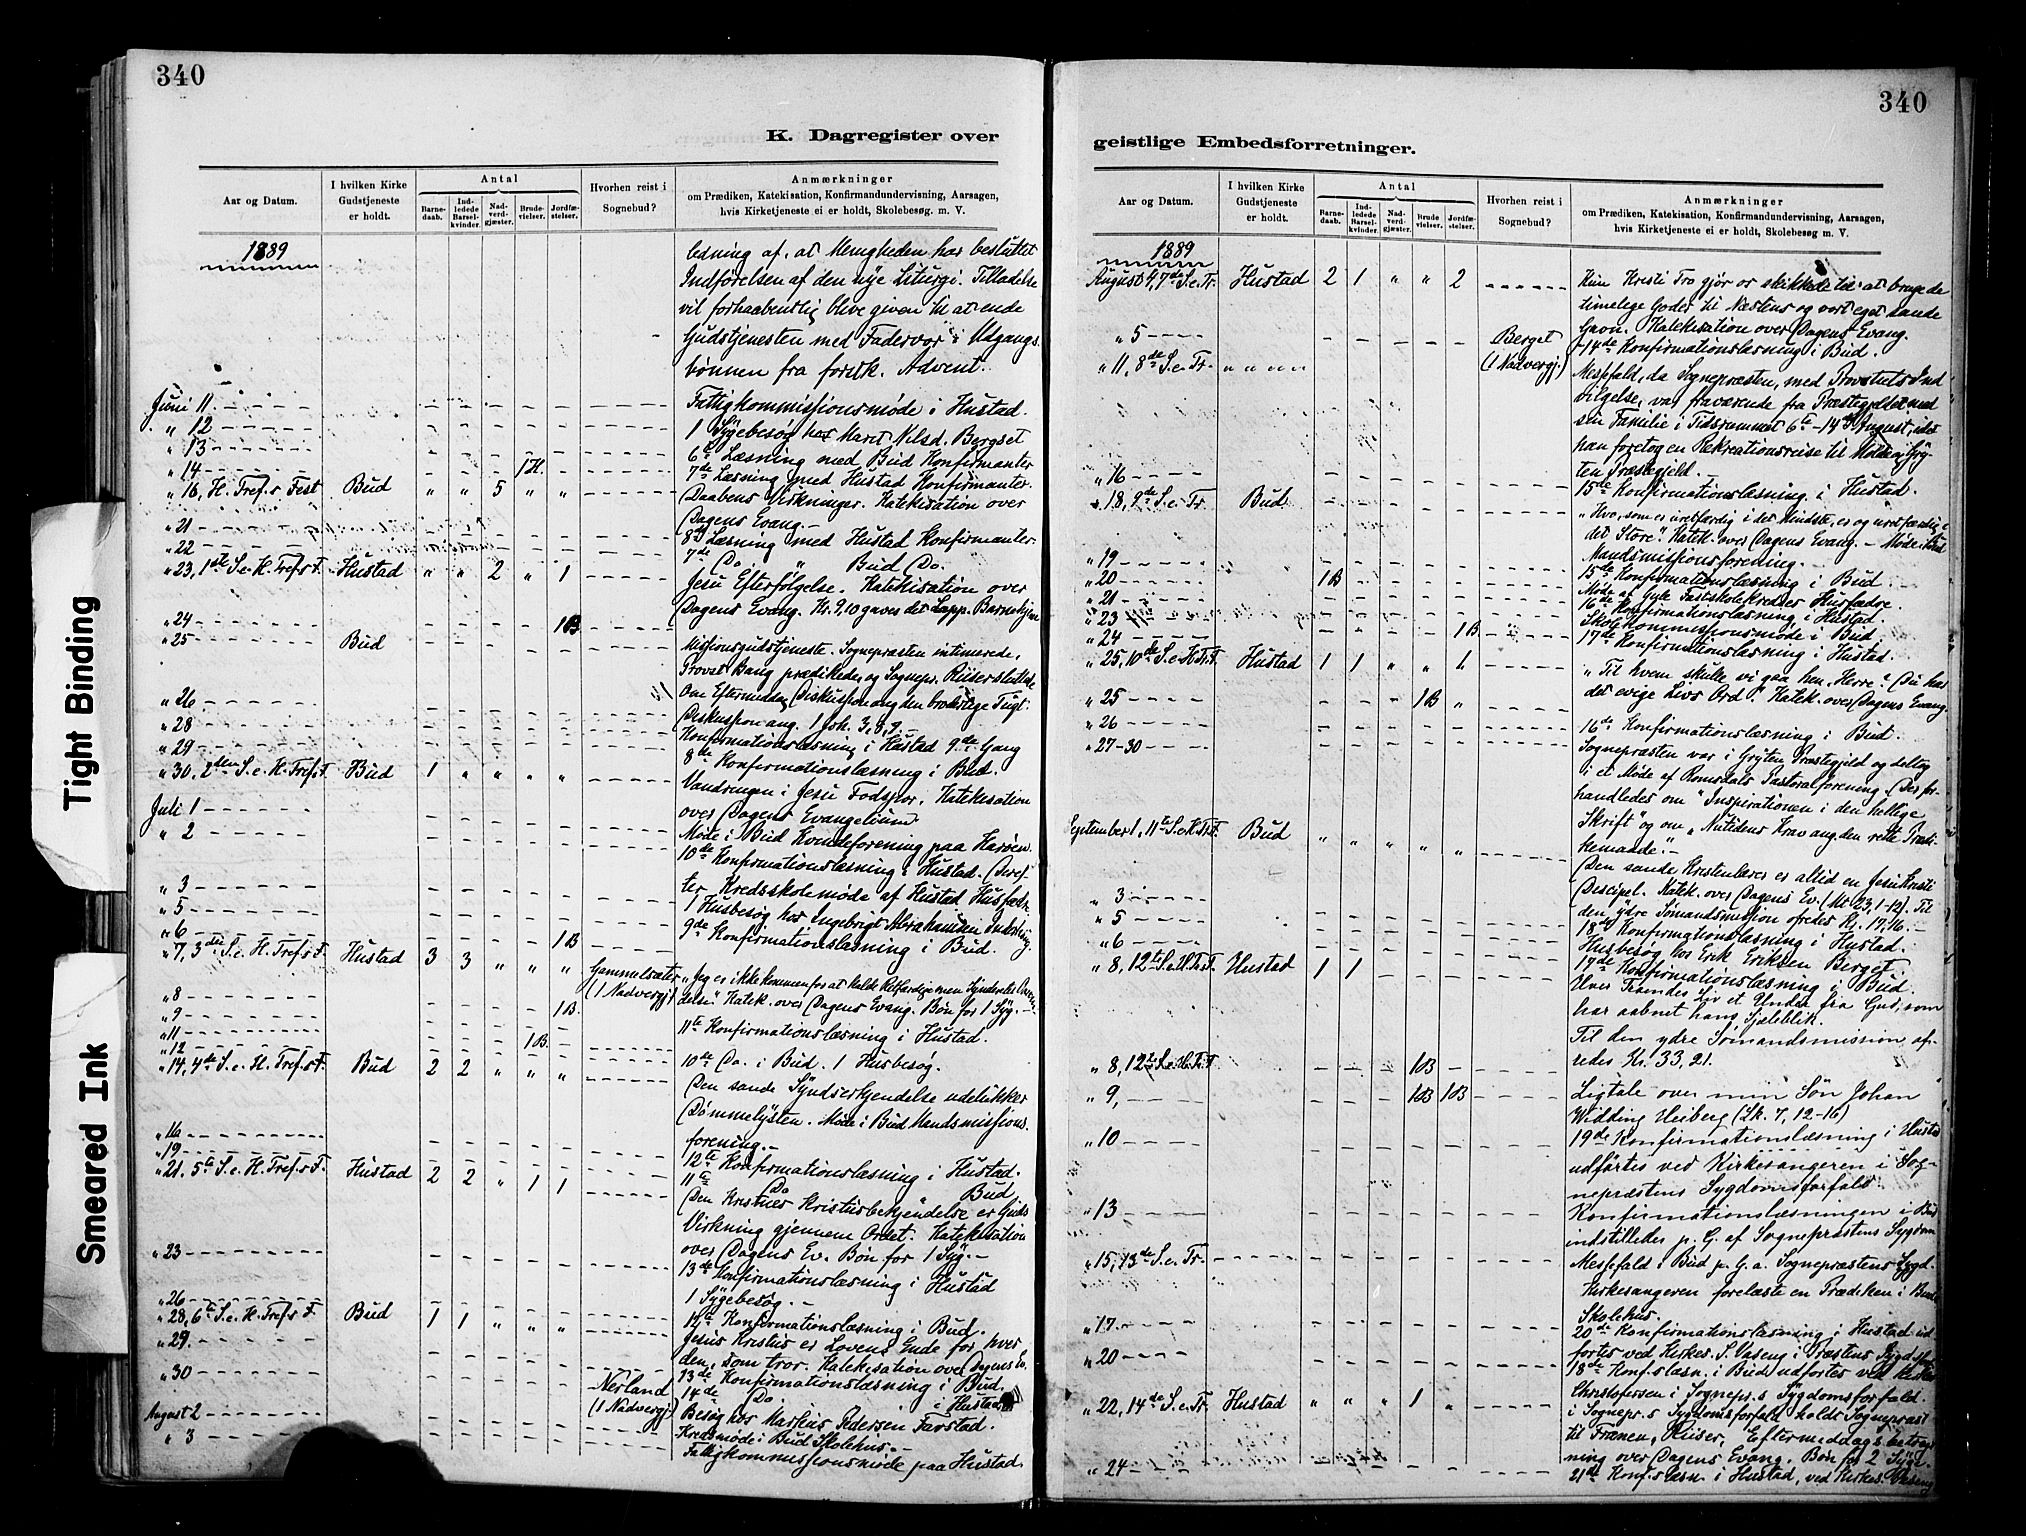 340
K. Dagregister over
Aar og Datum.
I hvilken Kirke Gudstjeneste er holdt.
Antal
Barne-daab.
Ind-ledede Barsel-kvinder.
Nad-verd-gjæster.
Brude-vielser.
Jordfæ-stelser.
Hvorhen reist i Sognebud?
Anmærkninger
om Prædiken, Katekisation, Konfirmandundervisning, Aarsagen,
hvis Kirketjeneste ei er holdt, Skolebesøg. m. V.
1889
ledning af, at Menigheden har besluttet
Indførelsen af den nye Liturgi. Tilladelse
vil forhaabentlig blive given til at ende
Gudstjenesten med Fadervor i Udgangs-
bønnen fra førstk. Advent.
Juni 11. Fattigkommissionsmøde i Hustad.
" 12 1 Sygebesøg hos Maret Nilsd. Bergset
" 13 6te Læsning med Bud Konfirmanter
" 14 1H. 7de Læsning med Hustad Konfirmanter.
" 16, H. Tref.s Fest Bud " " 5 " " Daabens Virkninger. Katekisation over
Dagens Evang. -
" 21 8de Læsning med Hustad Konfirmanter.
" 22 7de Do. " Bud Do.
" 23, 1ste S. e. H. Tref.s F. Hustad " " 2 " 1 Jesu Efterfølgelse. Katekisation over
Dagens Evang. Kr. 9,10 gaves det Lapp. Barnehjem
" 24 1B
" 25 Bud Missionsgudstjeneste. Sognepræsten intimerede,
Provst Bang prædikede, og Sognepr. Riiser sluttede
Om Eftermiddag Diskussion ang. den broderlige Tugt.
" 26 Diskussion ang. 1 Joh. 3, 8, 9.
" 28 Konfirmationslæsning i Hustad 9de Gang
" 29 8de Konfirmationslæsning i Bud.
" 30, 2den S. e. H. Tref.s F. Bud 1 " " " " Vandringen i Jesu Fodspor. Katekisation
over Dagens Evangelium
Juli 1 Møde i Bud Kvindeforening paa Harøen.
" 2 10de Konfirmationslæsning i Hustad. Deref-
ter Kredsskolemøde af Hustad Husfædr.
" 3 1 Husbesøg hos Ingebrigt Abrahamsen
" 5 9de Konfirmationslæsning i Bud.
" 6 1B
" 7, 3die S. e. H. Tref.s F. Hustad 3 3 " " " Gammelsæter (1 Nadvergj.) "Jeg er ikke kommen for at kalde Retfærdige, men Syndere til Omven-
delse." Katek. over Dagens Evang. Bøn for 1 Syg. -
" 8
" 9 1B. 11te Konfirmationslæsning i Hustad.
" 11
" 12 1B. 10de Do. i Bud. 1 Husbesøg.
" 14, 4de S. e. H. Tref.s F. Bud 2 2 " " " Den sande Syndserkjendelse udelukker
Dømmelysten. Møde i Bud Mandsmissions-
forening. -
" 16 12te Konfirmationslæsning i Hustad.
" 19 11te Do Bud
" 21, 5te S. e. H. Tref.s F. Hustad 2 2 " 1 1 Den Kristnes Kristusbekjendelse er Guds
Virkning gjennem Ordet. Katekisation
over Dagens Ev. Bøn for 1 Syg. -
" 23 13de Konfirmationslæsning i Hustad
1 Sygebesøg. -
" 26 12te Konfirmationslæsning i Bud.
" 28, 6te S. e. H. Tref.s F. Bud 1 1 " " " Jesus Kristus er Lovens Ende for hver
den, som tror. Katekisation over Dagens Ev.
" 29. 13de Konfirmationslæsning i Bud.
" 30 Nerland (1 Nadvergj.) 14de Do i Hustad
August 2 Besøg hos Markus Pedersen Farstad.
Kredsmøde i Bud Skolehus. -
" 3 Fattigkommissionsmøde paa Hustad.
340
geistlige Embedsforretninger.
Aar og Datum.
I hvilken Kirke Gudstjeneste er holdt.
Antal
Barne-daab.
Ind-ledede Barsel-kvinder.
Nad-verd-gjæster.
Brude vielser.
Jordfæ-stelser.
Hvorhen reist i Sognebud?
Anmærkninger
om Prædiken, Katekisation, Konfirmandundervisning, Aarsagen,
hvis Kirketjeneste ei er holdt, Skolebesøg m. V.
1889
August 4, 7de S. e. Tr. Hustad 2 1 " " 2 Kun Kristi Tro gjør os skikkede til at bruge de
timelege Goder til Næstens og vort eget sande
Gavn. Katekisation over Dagens Evang.
" 5 Berget (1 Nadvergj.) 14de Konfirmationslæsning i Bud.
" 11, 8de S. e. Tr. " " " " Messefald, da Sognepræsten, med Provstiets Ind-
vilgelse, var fraværende fra Præstegjeldet med
sin Familie i Tidsrummet 6te-14de August, idet
han foretog en Rekreationsreise til Molde og Gry-
ten Præstegjeld. -
" 16 15de Konfirmationslæsning i Hustad.
" 18, 9de S. e. Tr. Bud "Hvo, som er uretfærdig i det Mindste, er og uretfærdig i
det Store". Katek. over Dagens Evang. - Møde i Bud
Mandsmissionsforening. -
" 19 15de Konfirmationslæsning i Bud
" 20 1B Møde af Gule Fastskolekredses Husfædre.
" 21 16de Konfirmationslæsning i Hustad.
" 23 Skolekommissionsmøde i Bud.
" 24 1B 17de Konfirmationslæsning i Hustad.
" 25, 10de S. e. H. Tr. F. Hustad 1 1 " " 1 "Til hvem skulle vi gaa hen, Herre? Du har
det evige Livs Ord". Katek. over Dagens Evang.
" 25 1B "
" 26 16de Konfirmationslæsning i Bud.
" 27-30 Sognepræsten var i Gryten Præstegjeld og deltog
i et Møde af Romsdals Pastoralforening. (Der for-
handledes om "Inspirationen i den hellige
Skrift" og om "Nutidens Krav ang. den rette Prædi-
kemaade". -
September 1, 11te S. e. H. Tr. F. Bud " " " " " Den sande Kristenlærer er altid en Jesu Kristi
Discipel. Katek. over Dagens Ev. (Mt. 23, 1-12). Til
den ydre Sømandsmission ofredes Kr. 17,16. -
" 3 18de Konfirmationslæsning i Hustad.
" 5 Husbesøg hos Erik Eriksen Berget.
" 6 17de Konfirmationslæsning i Bud.
" 8, 12te S. e. H. Tr. F. Hustad 1 1 Hver Troendes Liv et Under fra Gud, som
har aabnet hans Sjæleblik.
Til den ydre Sømandsmission of-
redes Kr. 33,21.
" 8, 12te S. e. H. Tr. F. 1B
" 9, 1B 1B Ligtale over min Søn Johan
Widding Heiberg (Lk. 7, 12-16)
" 10 19de Konfirmationslæsning i Hustad
udførtes ved Kirkesangeren i Sog-
nepræstens Sygdomsforfald.
" 13 Konfirmationslæsningen i Bud
indstilledes p. G. af Sognepræstens Sygdom
" 15, 13de S. e. Tr. Messefald i Bud p. G. a. Sognepræstens Sygd.
Kirkesangeren forelæste en Prædiken i Bud
Skolehus.
" 17. 20de Konfirmationslæsning i Hustad ud-
førtes ved Kirkes. S. Vaseng i Præstens Sygd.
" 20 18de Konf.s læsn. i Bud udførtes ved Kirkes.
Christophersen i Sognepr.s Sygdomsforfald.
" 22, 14de S. e. Tr. Hustad " " " 1 " i Sognepr.s Sygdomsforfald holdt Sognepræst
til Frænen, Riiser, Eftermiddagsbetrag-
ning over Dagens Evang. Bøn for 2 Syge.
" 24 21de Konf.s læsn. i Hustad, ved Kirkes. Vaseng
Tight Binding
Smeared Ink